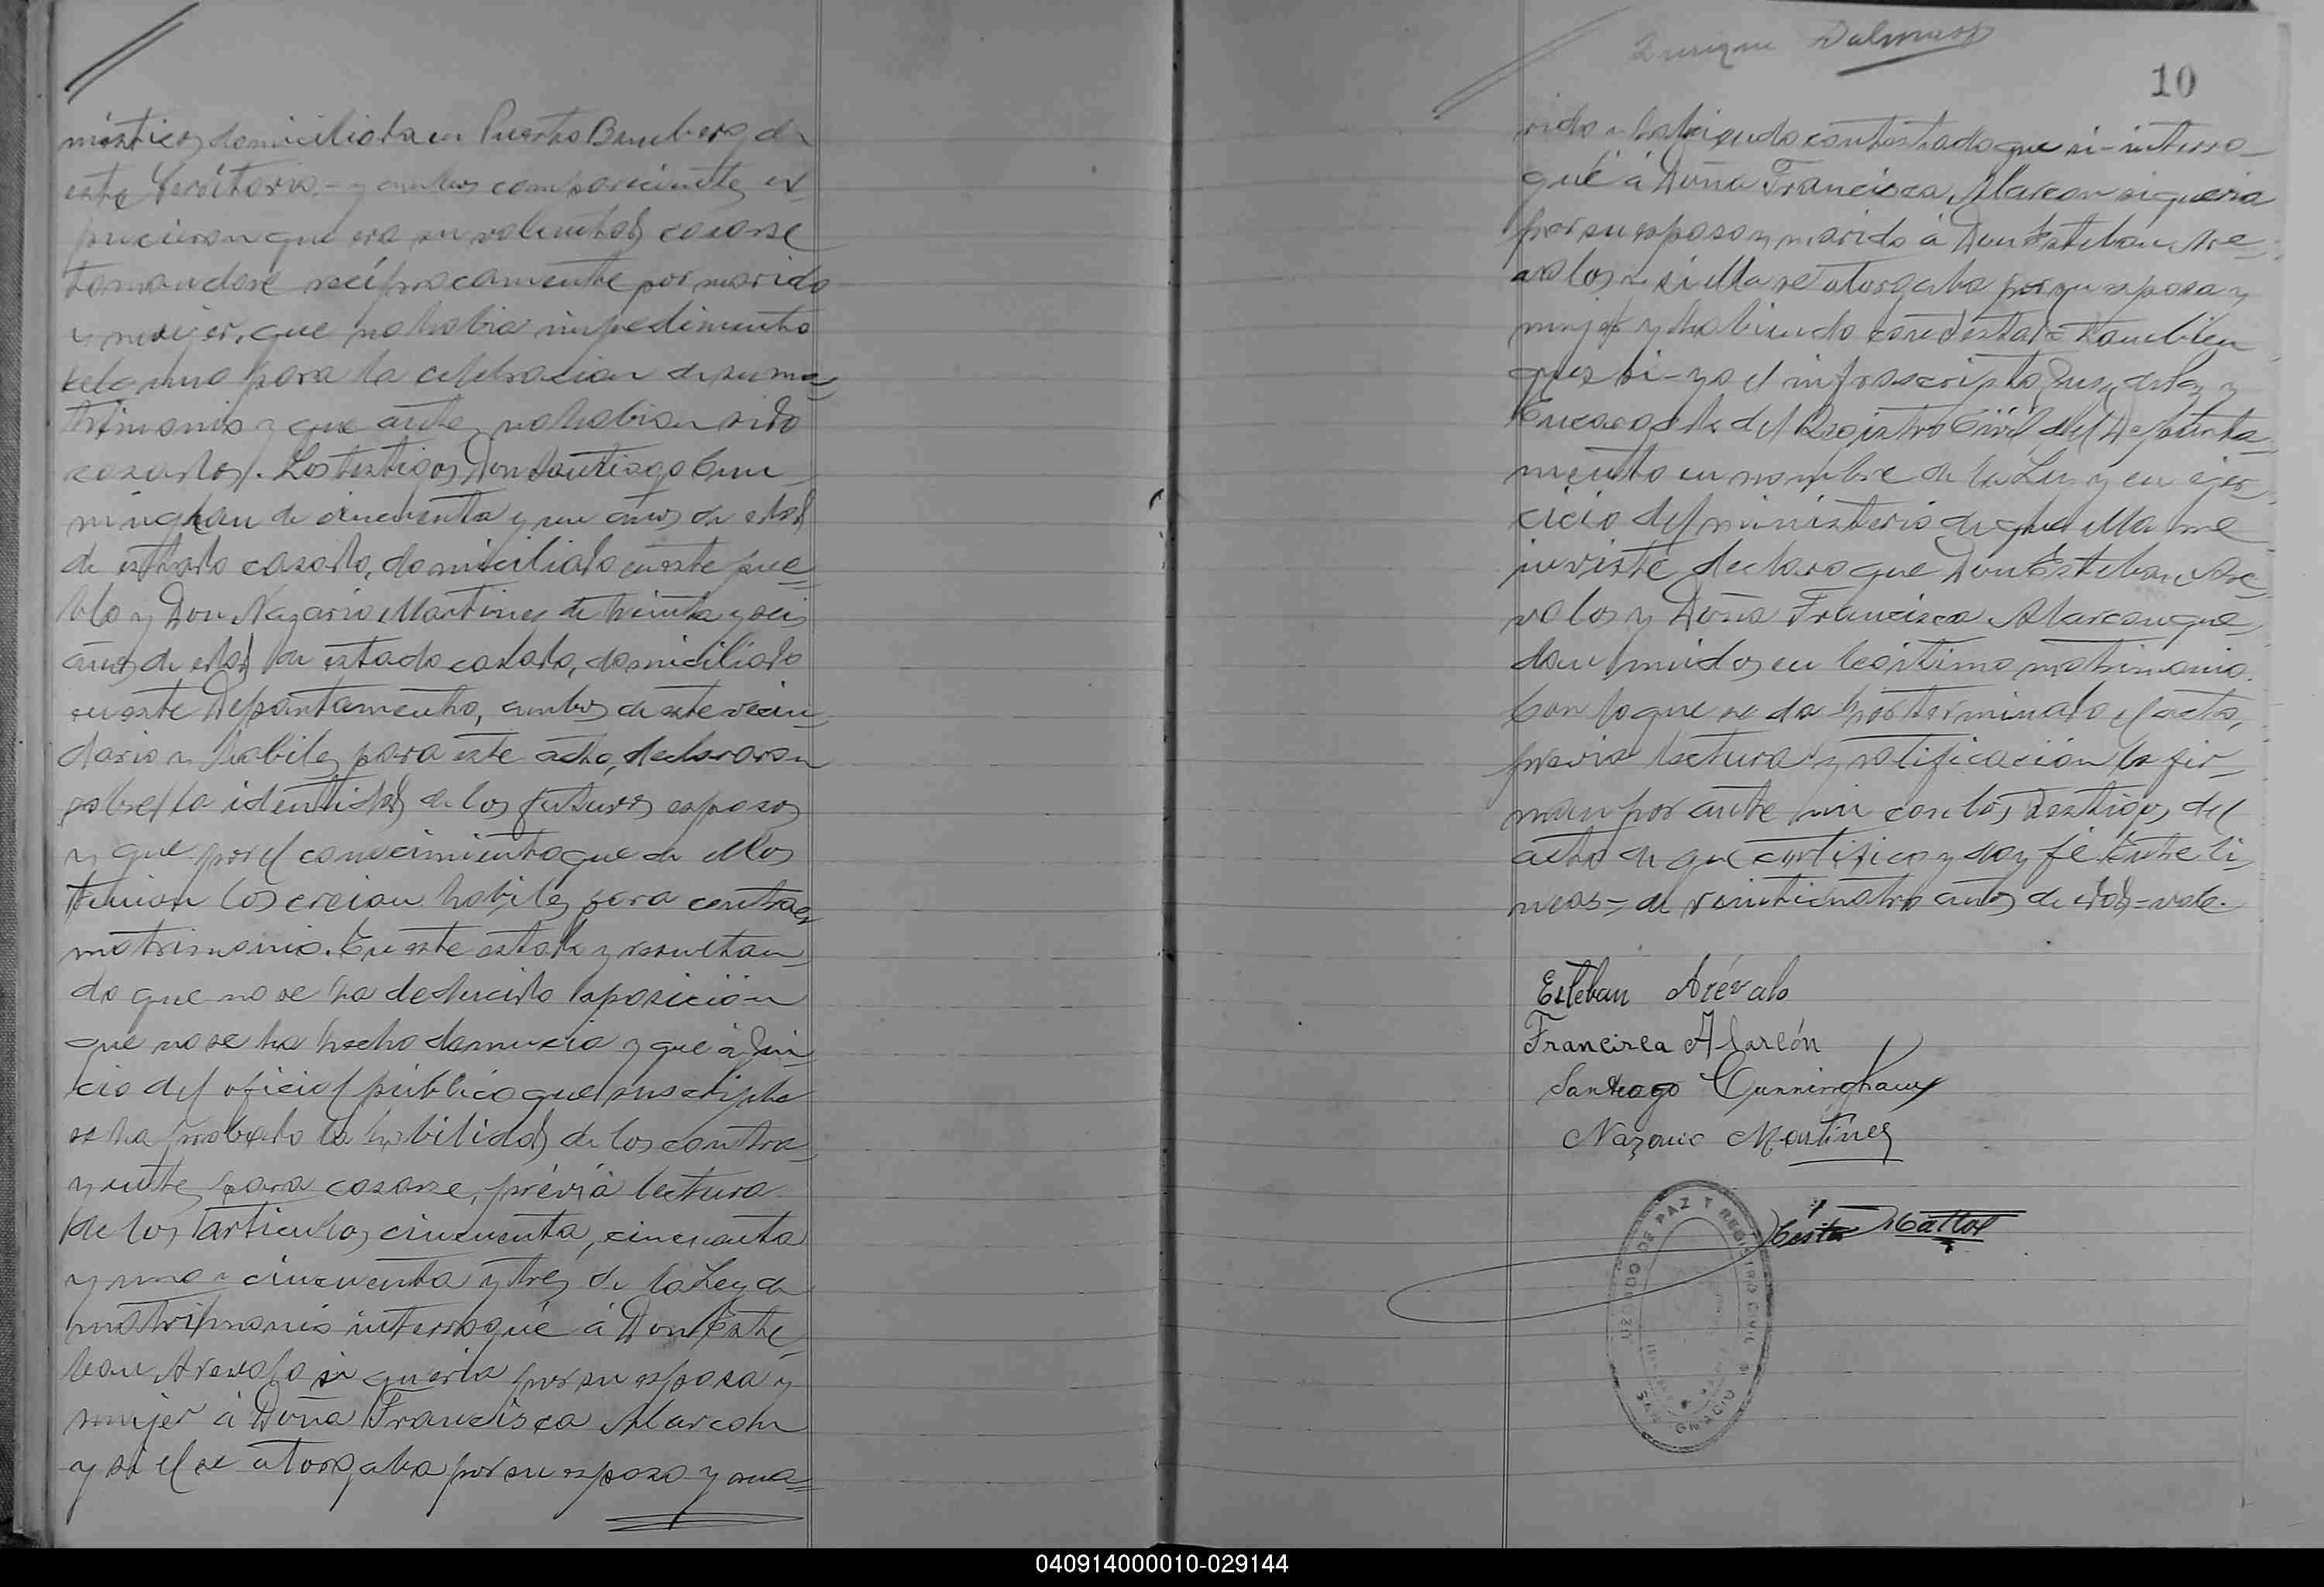 mésticos domiciliada en Puerto Bemberg de
este Territorio.- y ambos comparecientes ex-
pucieron que era su voluntad casarse
tomandose recíprocamente por marido
y mujer, que no habia impedimento
alguno para la celebracion de su ma=
trimonio y que antes no habian sido
casados. Los testigos Don Santiago Cun-
ninghan de cincuenta y un años de edad
de estado casado, domiciliado en este pue=
blo y Don Nazario Martinez de treinta y seis
años de edad de estado casado, domiciliado
en este Departamento, ambos de este vecin=
dario y habiles para este acto, declararon
sobre la identidad de los futuros esposos
y que por el conocimiento que de ellos
tenian los creian habiles para contraer
matrimonio. En este estado y resultan=
do que no se ha deducido oposición
que no se ha hecho denuncia y que á jui=
cio del oficial público que suscripbe
se ha probado la habilidad de los contra=
yentes para casarse, prévia lectura
de los articulos cincuenta, cincuenta
y uno y cincuenta y tres de la Ley de
matrimonio interrogué á Don Este=
ban Arevalo si queria por su esposa y
mujer á Doña Francisca Alarcon
y si el se otorgaba por su esposo y ma=
Enrique Dalmass
10
rido y habiendo contestado que si-interro-
gué á Doña Francisca Alarcon si queria
por su esposo y marido á Don Esteban Are=
valos y si ella se otorgaba por su esposa y
mujer y habiendo contestado tambien
que si-yo el infrascripto Juez de Paz y
Encargado del Registro Civil del Departa=
mento en nombre de la Ley y en ejer=
cicio del ministerio de que ella me
inviste declaro que Don Esteban Are=
valos y Doña Francisca Alarcon que=
dan unidos en legitimo matrimonio.
Con lo que se da por terminado el acto,
previa lectura y ratificación la fir=
man por ante mi con los testigos del
acto de que certifico y doy fé Entre li=
neas= de veinticuatro años de edad=vale.
Esteban Arévalo
Francisca Alarcón
Santiago Cunningham
Nazario Martinez
JUZGADO DE PAZ Y REGISTRO CIVIL
SAN IGNACIO
040914000010-029144